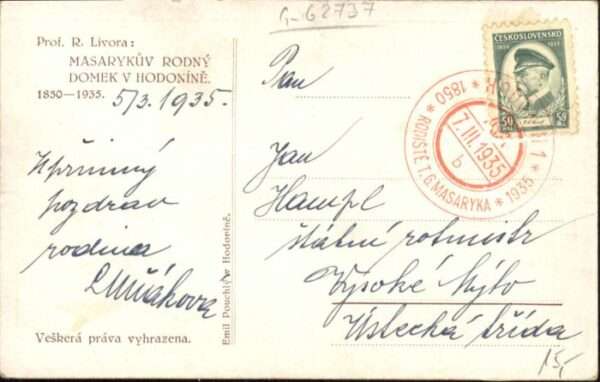 G-62737
Prof. R. Livora:
MASARYKŮV RODNÝ
DOMEK V HODONÍNĚ.
1850—1935.
5/3. 1935.
Upřímný
pozdrav
rodina
Veškerá práva vyhrazena.
Emil Pouchlý v Hodoníně.
Pan
Jan
Hampl
štátní rotmistr
Vysoké Mýto
Ústecká třída
15,-
ČESKOSLOVENSKO
50 50
HODONÍN 1
7.III.1935
b
* 1850 * RODIŠTĚ T.G.MASARYKA * 1935 *